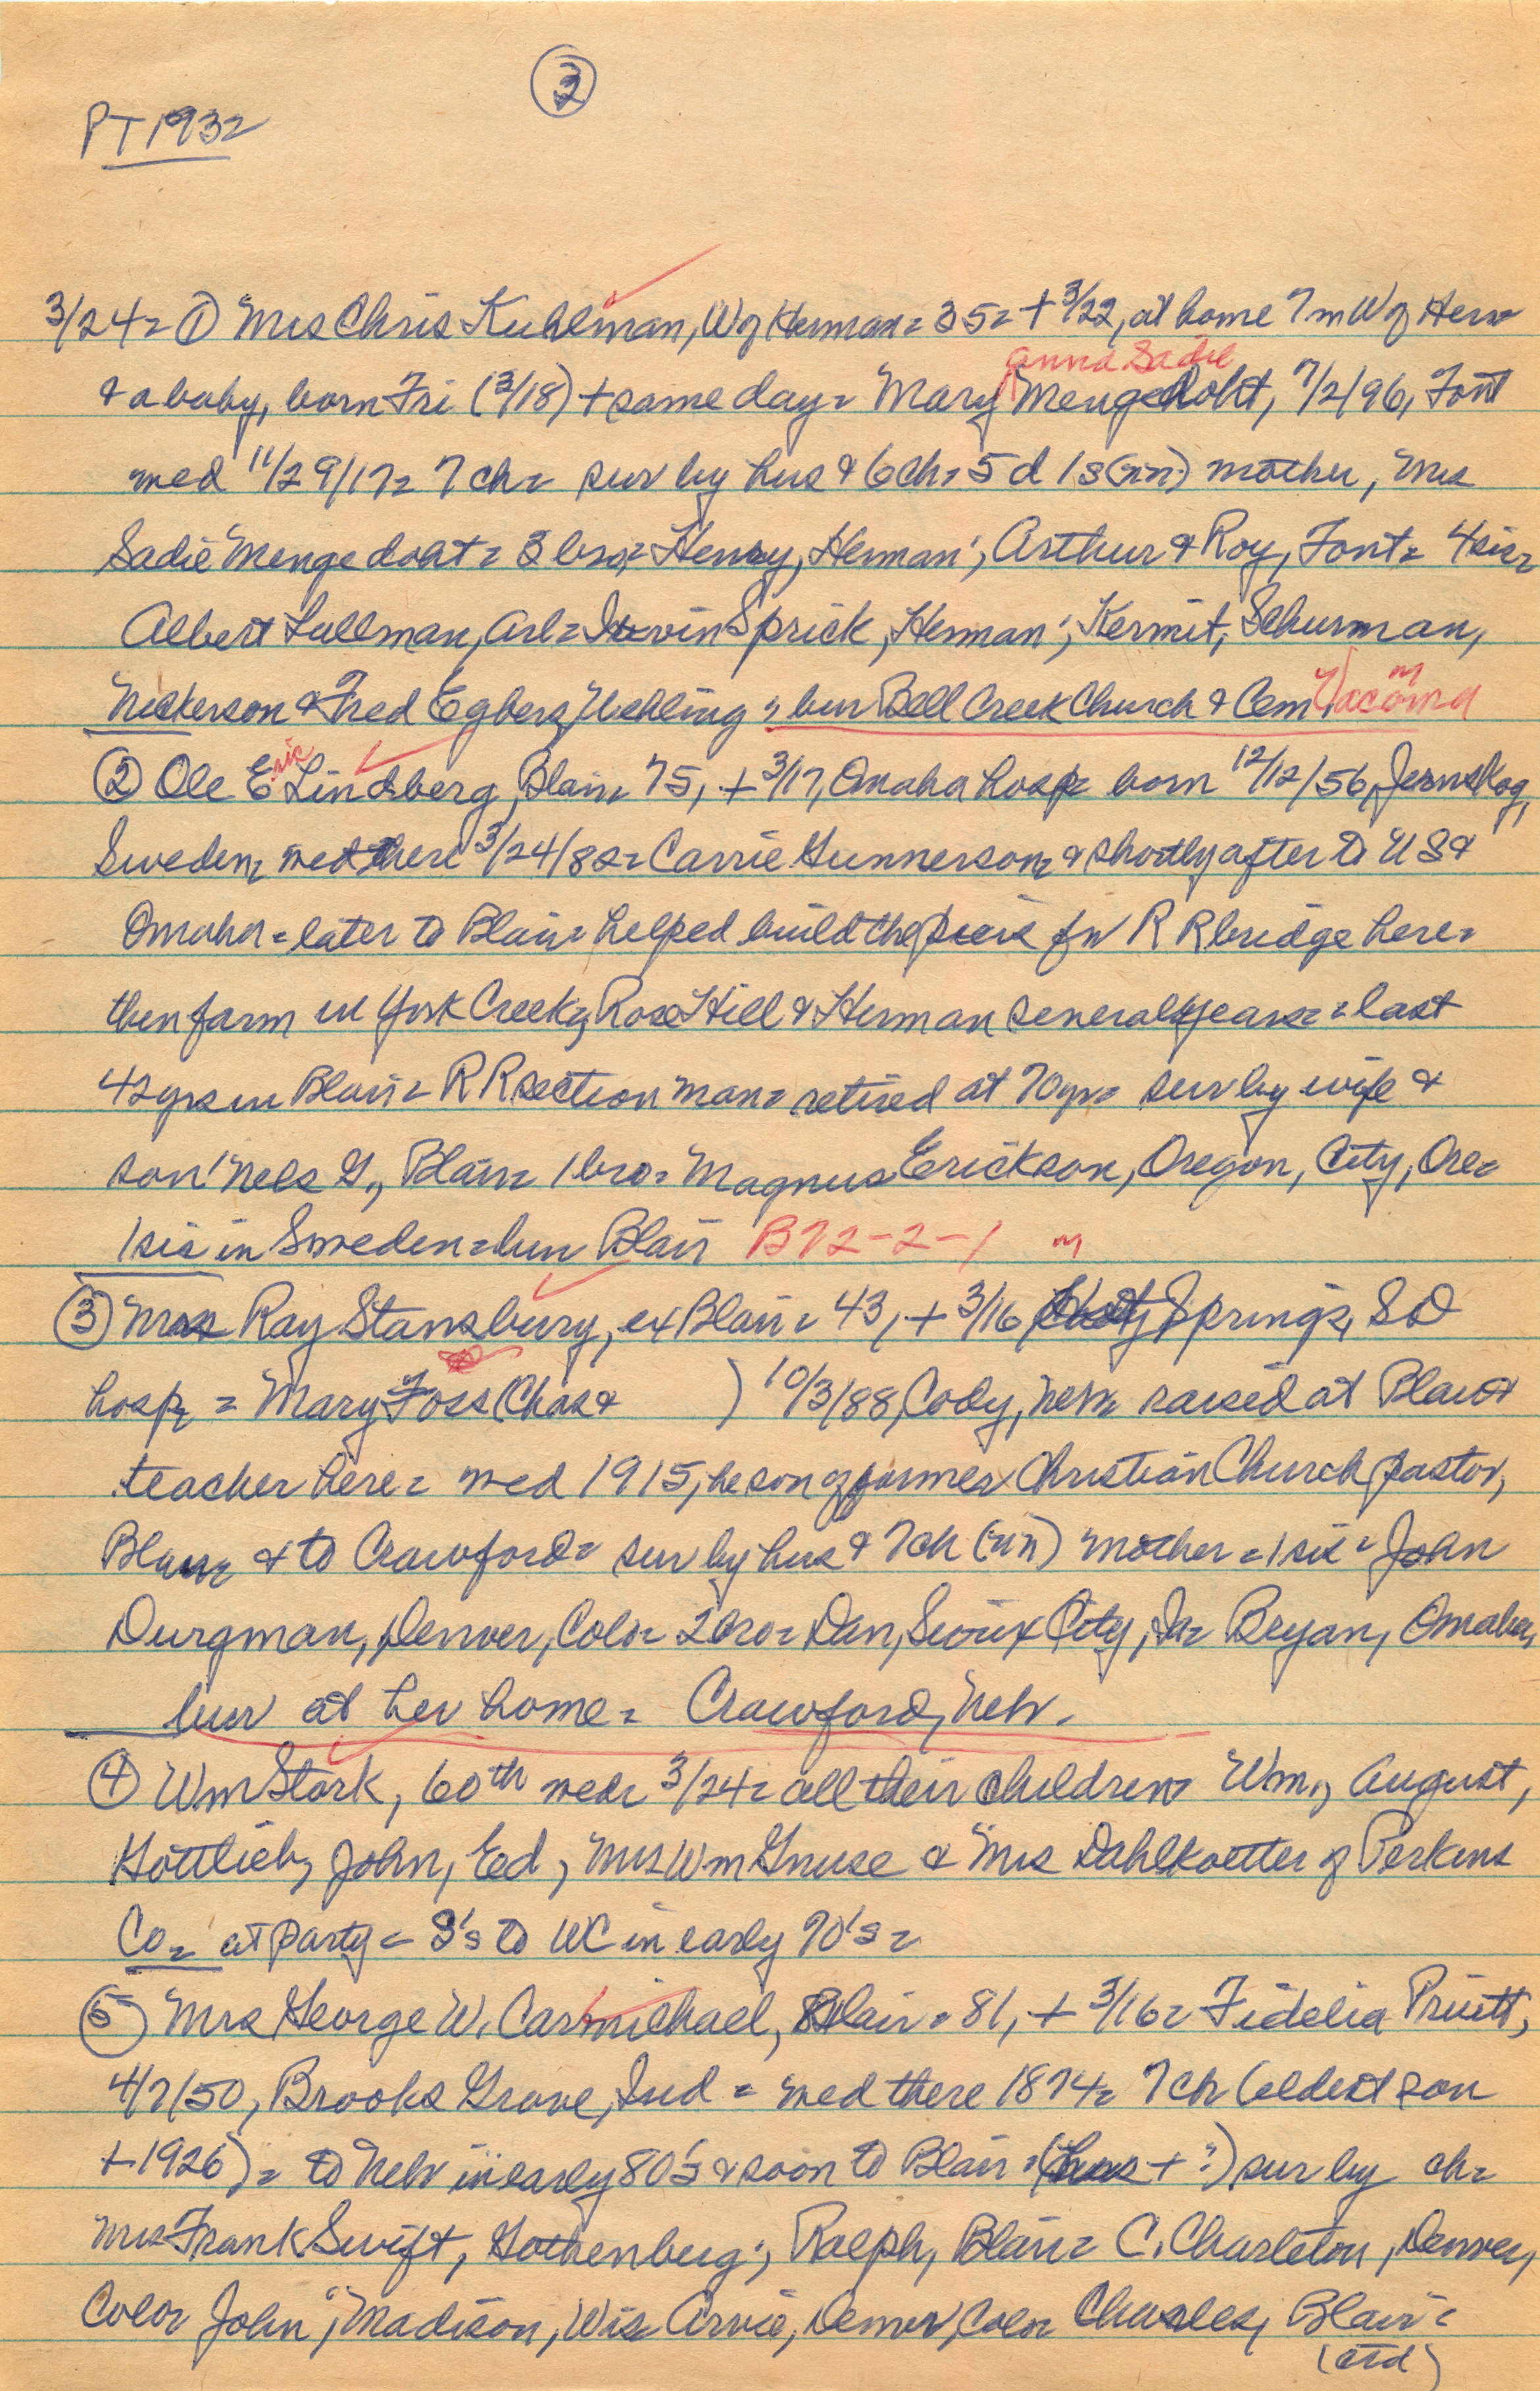 3
PT 1932
3/24= ① Mrs Chris Kuhlman, W of Herman= 35= + 3/22, at home 7 m W of Herm
Anna Sadie
& a baby, born Fri (3/18) + same day= Mary Mengedoht, 7/2/96, Font
med 11/29/17= 7 ch= sur by hus & 6 ch= 5 d 1 s (nn) mother, Mrs
Sadie Mengedoht= 3 bro= Henry, Herman; Arthur & Roy, Font= 4 sis=
Albert Lullman, Arl= Irvin Sprick, Herman; Kermit Schurman,
Nickerson & Fred Egbers, Uehling; bur Bell Creek Church & Cem Vacoma m
② Ole Eric Lindberg, Blair= 75, + 3/17, Omaha hosp= born 12/12/56, Jernskog,
Sweden, med there 3/24/82= Carrie Gunnerson= & shortly after to US &
Omaha= later to Blair= helped build the piers for R R bridge here=
then farm in York Creek, Rose Hill & Herman several years= last
42 yrs in Blair= R R section man= retired at 70 yr= sur by wife &
son Nels G., Blair= 1 bro= Magnus Erickson, Oregon, City, Ore=
1 sis in Sweden= bur Blair B72-2-1 m
③ Mrs Ray Stansbury, ex Blair= 43, + 3/16 Springs, SD
hosp= Mary Foss (Chas & ) 10/3/88, Cody, Neb= raised at Blair &
teacher here= med 1915, he son of former Christian Church pastor,
Blair= & to Crawford= sur by hus & 7 ch (nn) mother= 1 sis= John
Durgman, Denver, Colo= 2 bro= Dan, Sioux City, Ia= Bryan, Omaha,
bur at her home= Crawford, Neb.
④ Wm Stork, 60th med= 3/24= all their children= Wm., August,
Gottlieb, John, Ed, Mrs Wm Gnuse & Mrs Dahlkoetter of Perkins
Co= at party= S's to WC in early 70's=
⑤ Mrs George W. Carmichael, Blair= 81, + 3/16= Fidelia Pruett,
4/7/50, Brooks Grove, Ind= med there 1874= 7 ch (eldest son
+ 1926)= to Neb in early 80's & soon to Blair= (hus + ?) sur by ch=
Mrs Frank Swift, Gothenburg; Ralph, Blair= C. Charleton, Denver,
Colo= John; Madison, Wis= Arvie, Denver, Colo= Charles, Blair=
(ctd)